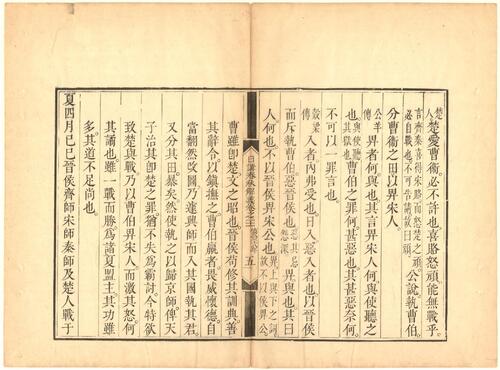 楚愛曹衞必不許也喜賂怒頑能無戰乎。
言齊秦喜得宋賂而怒楚之頑
必自戰也不可告請故曰頑
公說執曹伯。
分曹衞之田以畀宋人
公羊傳
畀者何與也其言畀宋人何與使聽之
也
曹伯之罪何甚惡也其甚惡奈何。
不可以一罪言也。
穀梁傳
入者內弗受也。日入惡入者也以晉侯
而斥執曹伯惡晉侯也
畀與也其曰
人何也不以晉侯畀宋公也
畀上與下之詞
故不以侯畀公
日講春秋解義卷之二十
五
曹雖卽楚文之昭也晉侯苟修其訓典善
其辭令以鎭撫之曹伯羸者畏威懷德自
當翻然改圖乃遽興師而入其國執其君。
又分其田暴矣然使執之以歸京師俾天
子治其卽楚之罪。猶不失爲霸討。今特欲
致楚與戰乃以曹伯畀宋人而激其怒何
其譎也雖一戰而勝爲諸夏盟主其功雖
多其道不足尚也
夏四月己巳晉侯齊師宋師秦師及楚人戰于